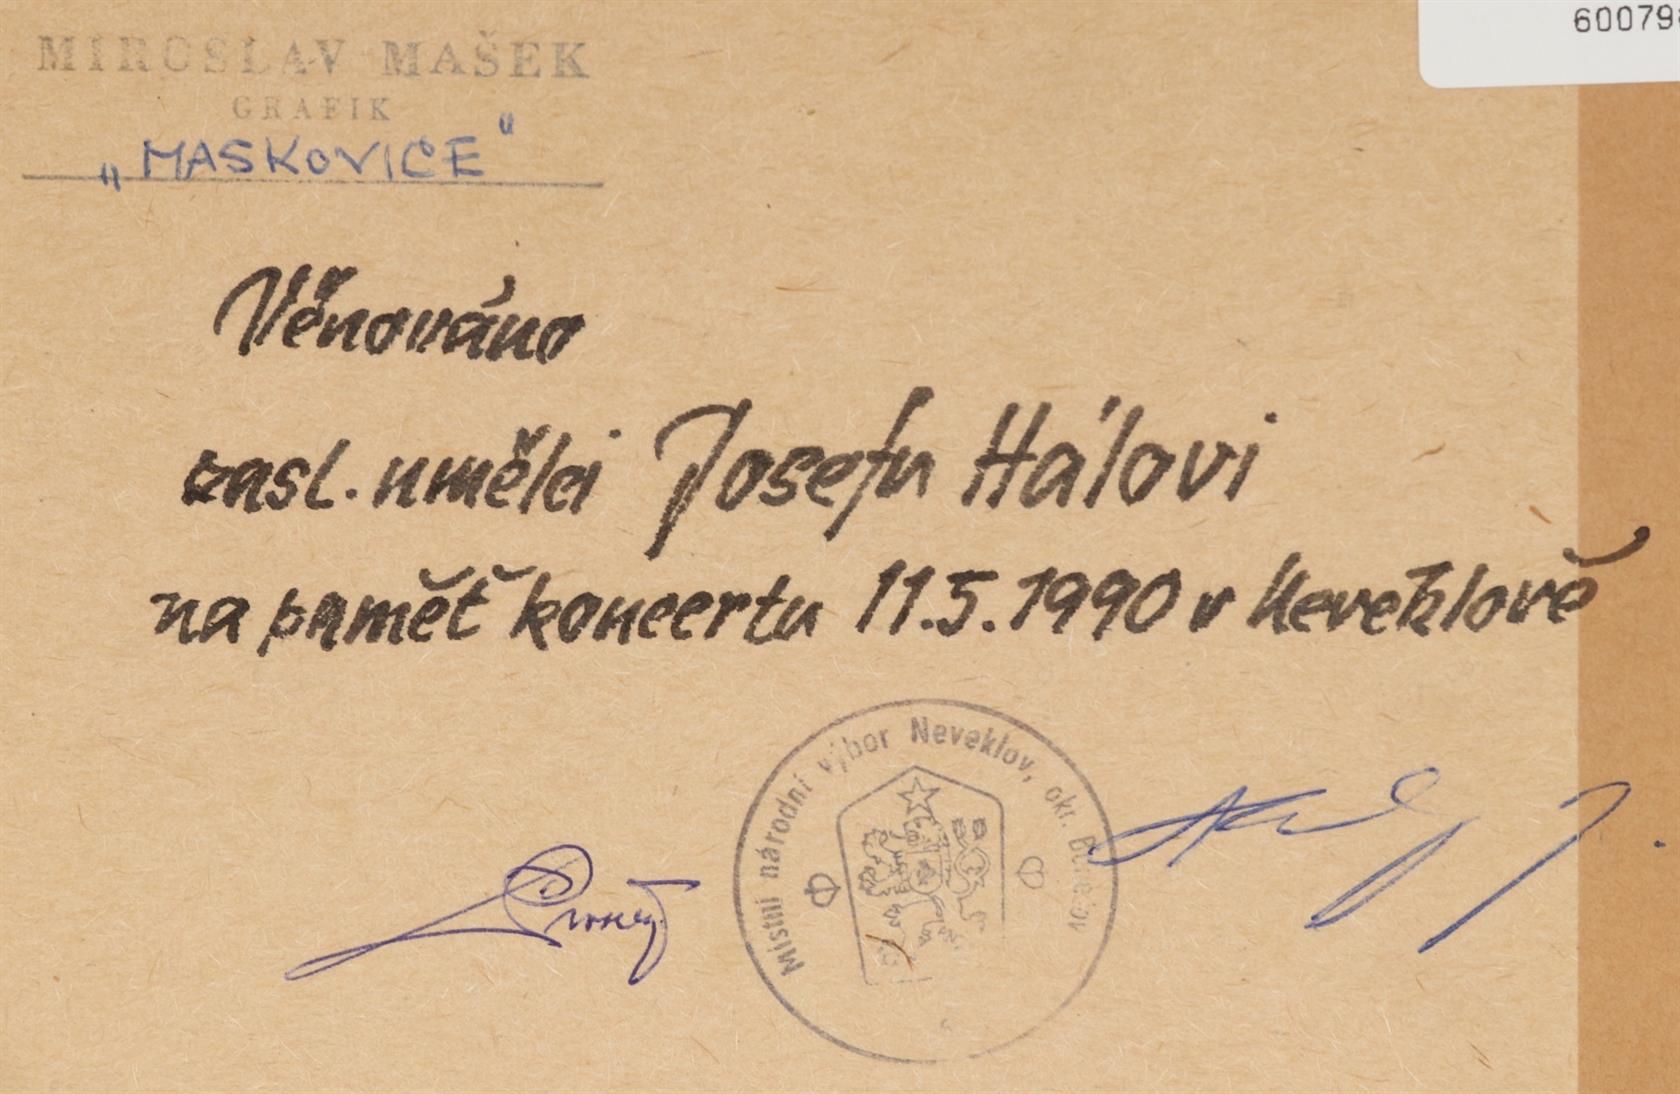 60079
MIROSLAV MAŠEK
GRAFIK
„MASKOVICE"
Věnováno
zasl. umělci Josefu Hálovi
na paměť koncertu 11.5.1990 v Neveklově
Místní národní výbor Neveklov, okr. Benešov